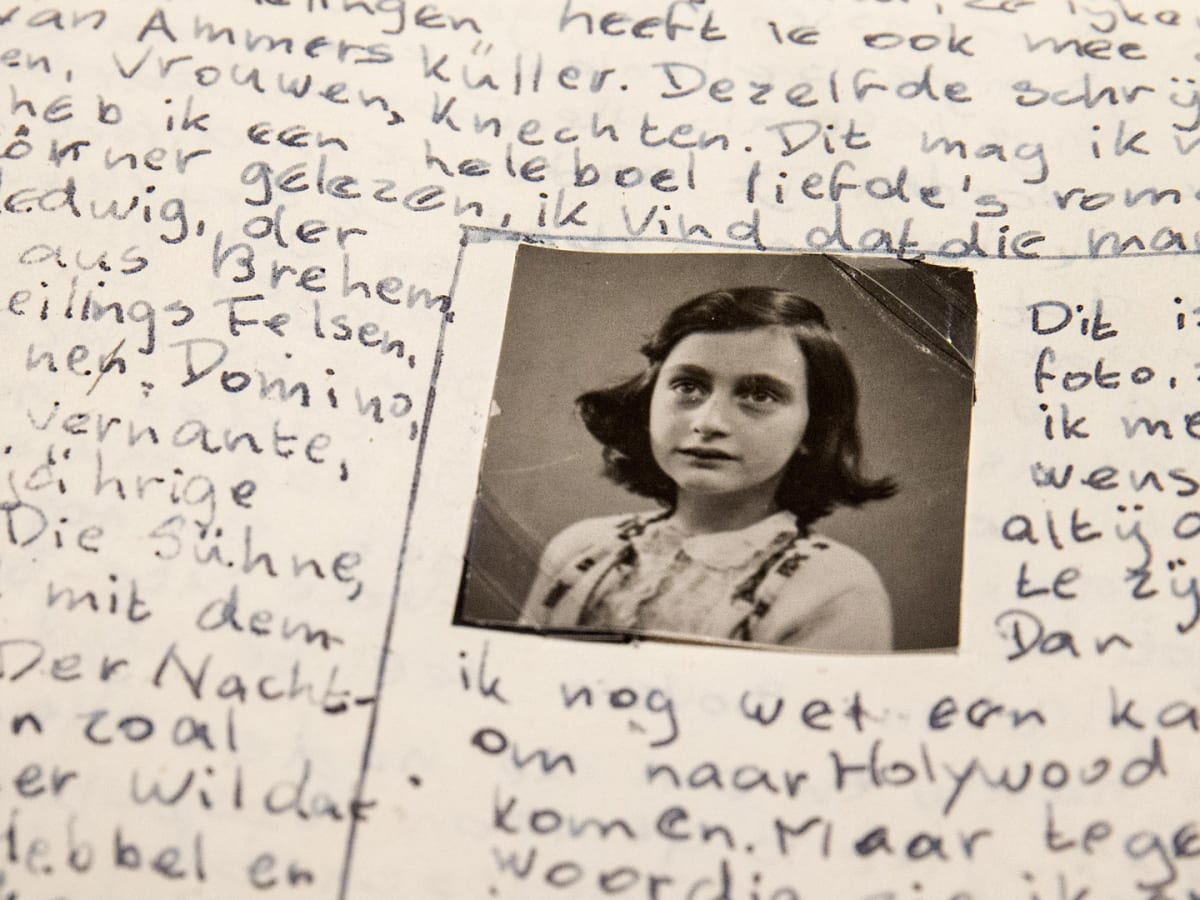 heeft ie ook mee
van Ammers Küller. Dezelfde
en, vrouwen, Knechten. Dit mag ik
heb ik een heleboel liefde's rom
örner gelezen, ik vind dat die ma
edwig, der
aus Brehem
eilings Felsen,
nen. Domino,
vernante,
jährige
Die Sühne,
mit dem
Der Nacht-
n zoal
er wildat
ebbel en
Dit is
foto,
ik me
wens
altijd
te zij
Dan
ik nog wet een ka
om naar Holywood
komen. Maar tege
woordig zie ik